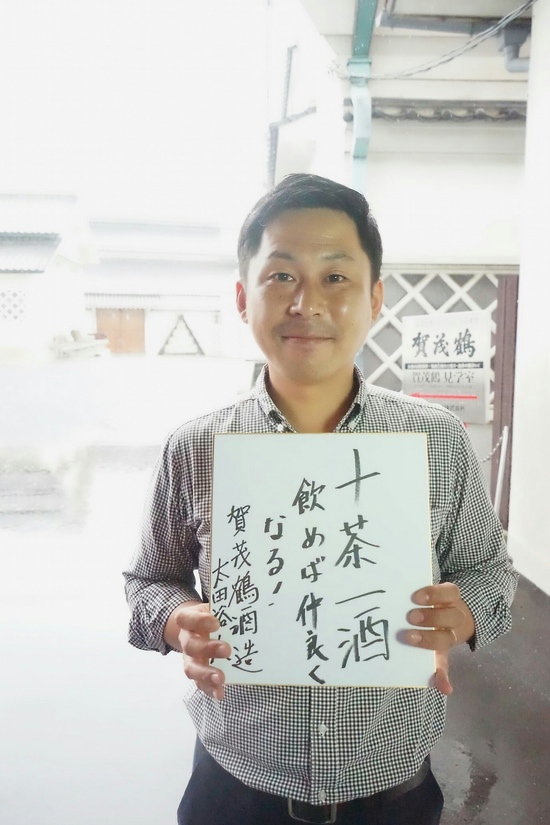 十茶一酒
飲めば仲良く
なる！
賀茂鶴酒造
太田谷
賀茂鶴
賀茂鶴 見学室